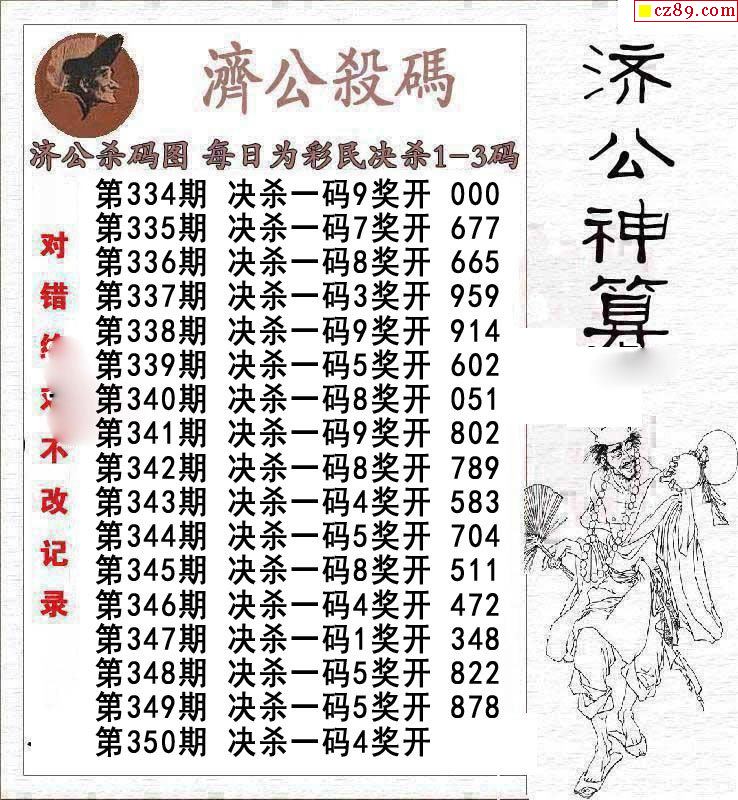 cz89.com
濟公殺碼
济公杀码图 每日为彩民决杀1-3码
第334期 决杀一码9奖开 000
第335期 决杀一码7奖开 677
第336期 决杀一码8奖开 665
第337期 决杀一码3奖开 959
第338期 决杀一码9奖开 914
第339期 决杀一码5奖开 602
第340期 决杀一码8奖开 051
第341期 决杀一码9奖开 802
第342期 决杀一码8奖开 789
第343期 决杀一码4奖开 583
第344期 决杀一码5奖开 704
第345期 决杀一码8奖开 511
第346期 决杀一码4奖开 472
第347期 决杀一码1奖开 348
第348期 决杀一码5奖开 822
第349期 决杀一码5奖开 878
第350期 决杀一码4奖开
对错不改记录
济公神算